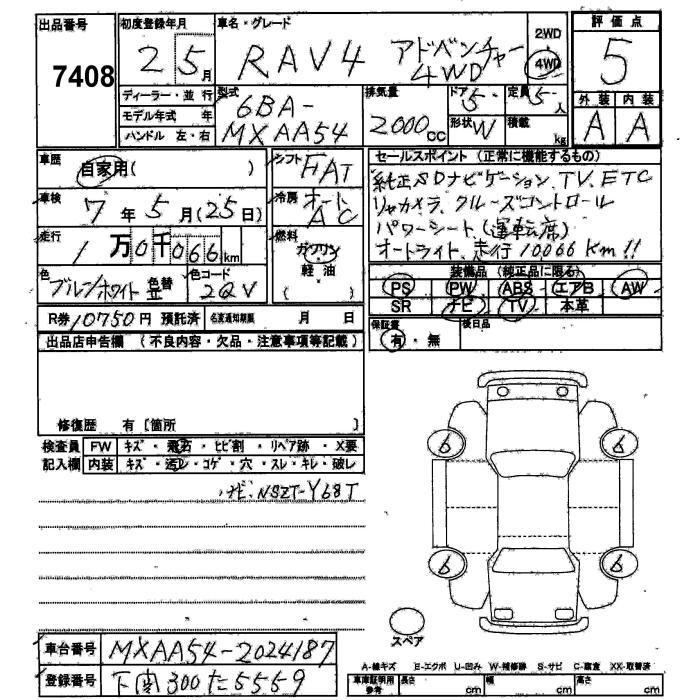 出品番号 7408
初度登録年月 2 5月
車名・グレード RAV4 アドベンチャー 4WD
2WD 4WD
評価点 5
外装 内装
A A
ディーラー・並行
モデル年式 年
ハンドル 左・右
型式 6BA-MXAA54
排気量 2000cc
ドア 5 定員 5人
形状 W 積載 kg
車歴 自家用( )
車検 7年5月(25日)
走行 1万0千066km
色 ブルー/ホワイト 色替 並 色コード 2QV
シフト FAT
冷房 オート AC
燃料 ガソリン 軽油 ( )
セールスポイント (正常に機能するもの)
純正SDナビゲーション、TV、ETC
リヤカメラ、クルーズコントロール
パワーシート、(運転席)
オートライト、走行10066Km!!
装備品 (純正品に限る)
PS PW ABS エアB AW
SR ナビ TV 本革
R券 10750円 預託済 名変通知期限 月 日
保証書 有・無 後日品
出品店申告欄 (不良内容・欠品・注意事項等記載)
修復歴 有 [箇所 ]
検査員記入欄
FW キズ・飛石・ヒビ割・リペア跡・X要
内装 キズ・汚レ・コゲ・穴・スレ・キレ・破レ
ナビ:NSZT-Y68T
6 6
6 6
スペア
車台番号 MXAA54-2024187
登録番号 下関300た5559
A-線キズ E-エクボ U-凹み W-補修跡 S-サビ C-腐食 XX-取替済
車庫証明用参考 長さ cm 幅 cm 高さ cm